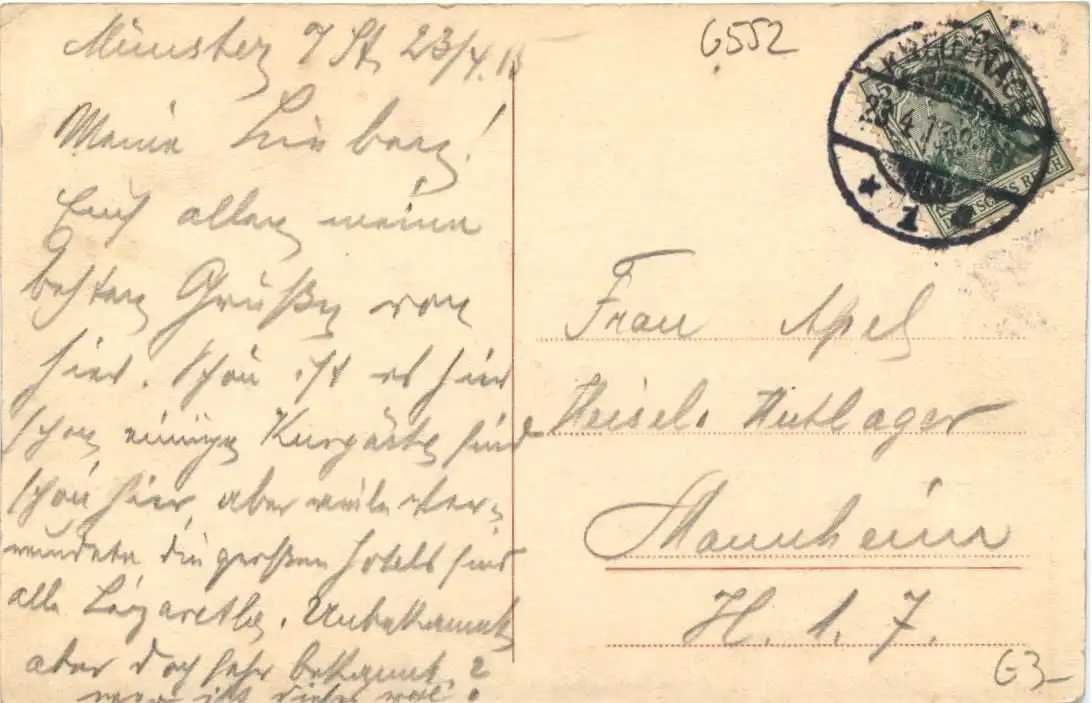 Münster a/St. 23/4.15
6552
Meine Lieben!
Euch allen meine
besten Grüße von
hier. Schön ist es hier
schon einige Kurgäste sind
schon hier aber viele Ver-
wundete die großen Hotels sind
alle Lazarethe. Unbekannt
aber doch sehr bekannt.
wer ist dieses wohl?
Frau Apel
Hutlager
Mannheim
H. 1. 7.
KREUZNACH
23.4.15
* 1
REICH
G3-